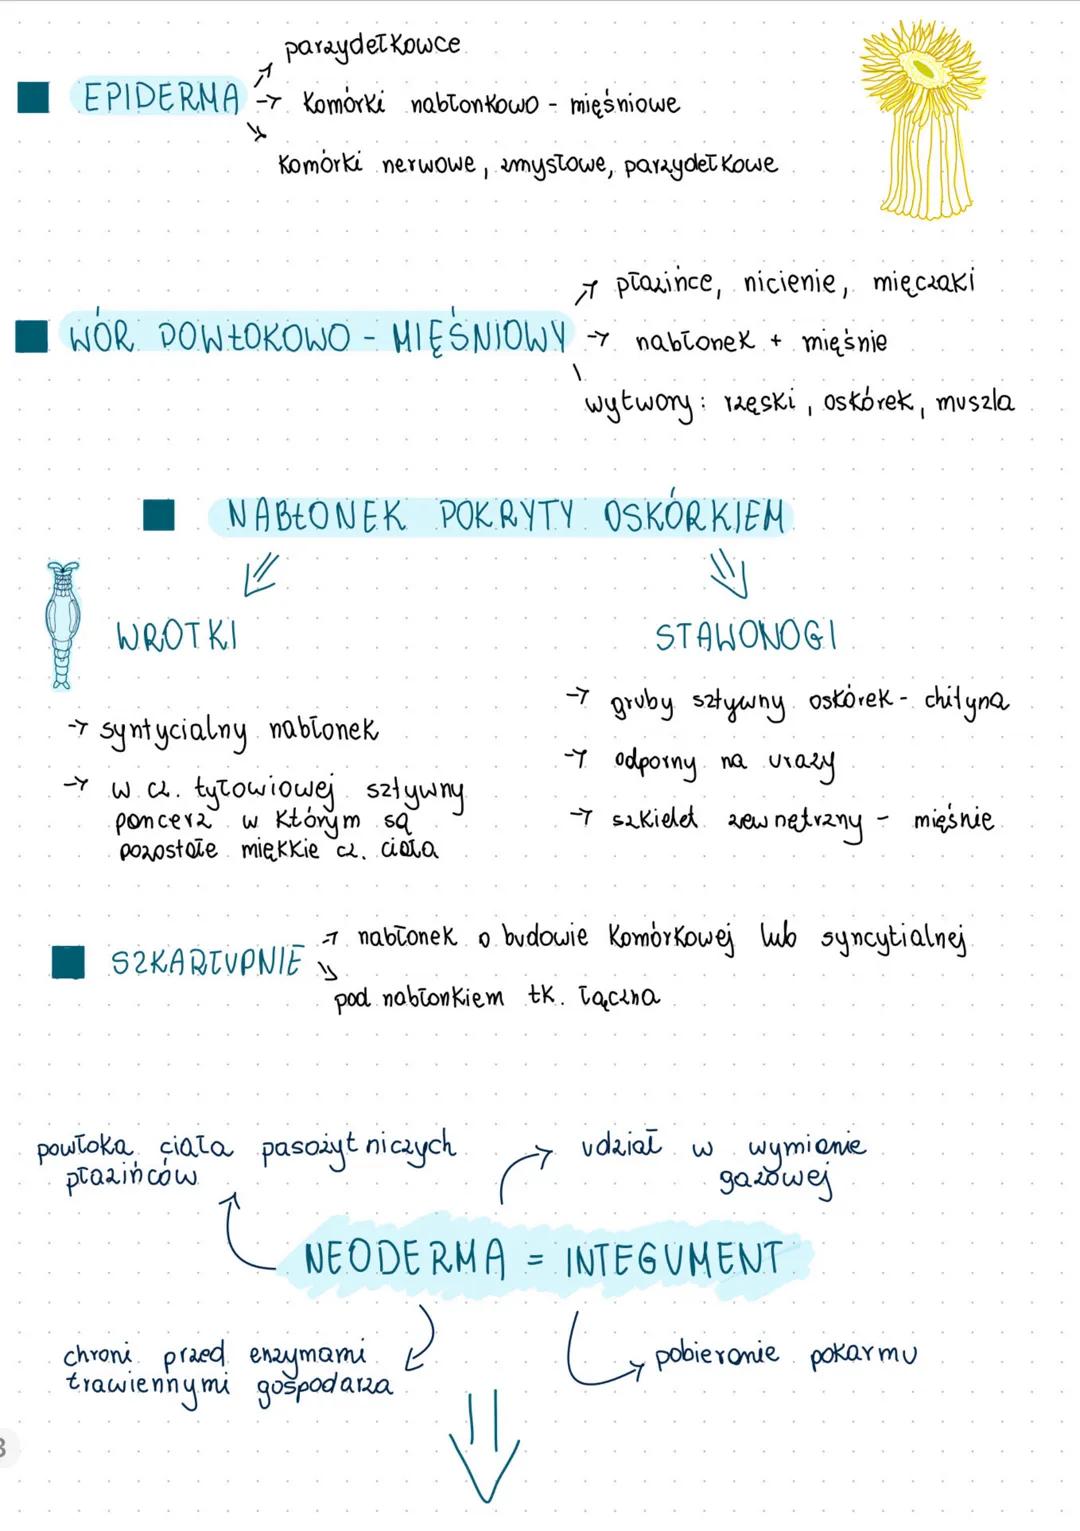 parzydełkowce
EPIDERMA → komórki nabłonkowo - mięśniowe
komórki nerwowe, zmysłowe, parzydełkowe
płazińce, nicienie, mięczaki
WÓR POWŁOKOWO - MIĘŚNIOWY → nabłonek + mięśnie
wytwory: rzęski, oskórek, muszla
NABŁONEK POKRYTY OSKÓRKIEM
WROTKI
→ syntycialny nabłonek
→ w cz. tyłowiowej sztywny
pancerz w którym są
pozostałe miękkie cz. ciała
STAWONOGI
→ gruby sztywny oskórek - chityna
→ odporny na urazy
→ szkielet zewnętrzny - mięśnie
→ nabłonek o budowie komórkowej lub syncytialnej
SZKARŁUPNIE
pod nabłonkiem tk. łączna
powłoka ciała pasożytniczych
płazińców
udział w wymianie
gazowej
NEODERMA = INTEGUMENT
chroni przed enzymami
trawiennymi gospodarza
pobieranie pokarmu
3